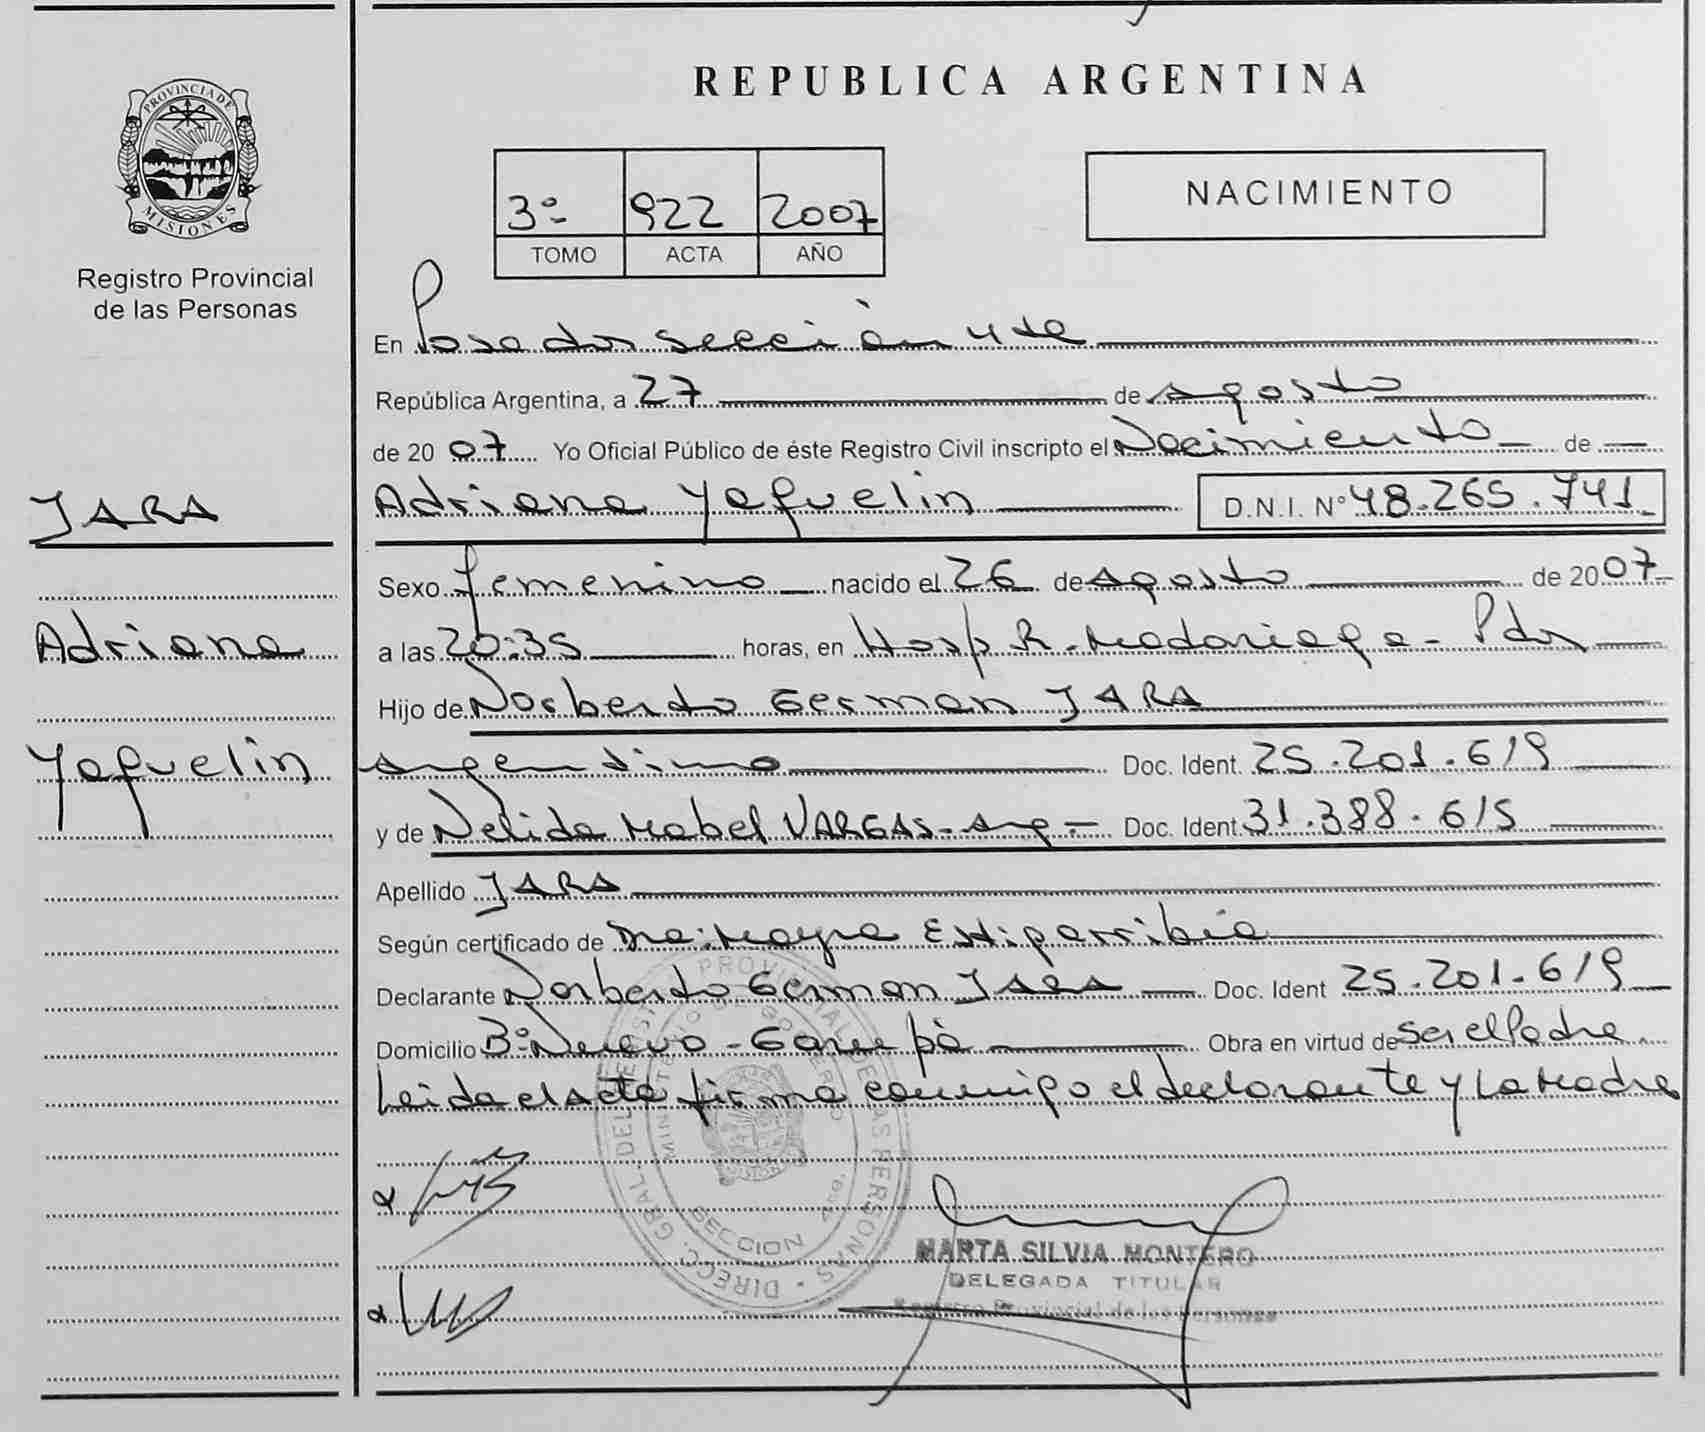 PROVINCIA DE
MISIONES
Registro Provincial
de las Personas
REPUBLICA ARGENTINA
3º 922 2007
TOMO ACTA AÑO
NACIMIENTO
En Posadas sección 4ta
República Argentina, a 27 de agosto
de 2007 Yo Oficial Público de éste Registro Civil inscripto el Nacimiento de
JARA
Adriana Yaquelin D.N.I. Nº 48.265.741
Sexo femenino nacido el 26 de agosto de 2007
Adriana
a las 20:35 horas, en Hosp R. Madariaga - Pdas
Hijo de Norberto German JARA
Yaquelin
argentino Doc. Ident. 25.201.619
y de Nelida Mabel VARGAS - arg - Doc. Ident. 31.388.615
Apellido JARA
Según certificado de Dra: Mayra Estigarribia
Declarante Norberto German JARA Doc. Ident 25.201.619
Domicilio Bº Nuevo - Garupá Obra en virtud de ser el Padre.
Leida el acta firma conmigo el declarante y la Madre
DIREC. GRAL. DEL REGISTRO PROVINCIAL DE LAS PERSONAS
MINISTERIO DE GOBIERNO
SECCION 4ta.
MARTA SILVIA MONTERO
DELEGADA TITULAR
Registro Provincial de las Personas